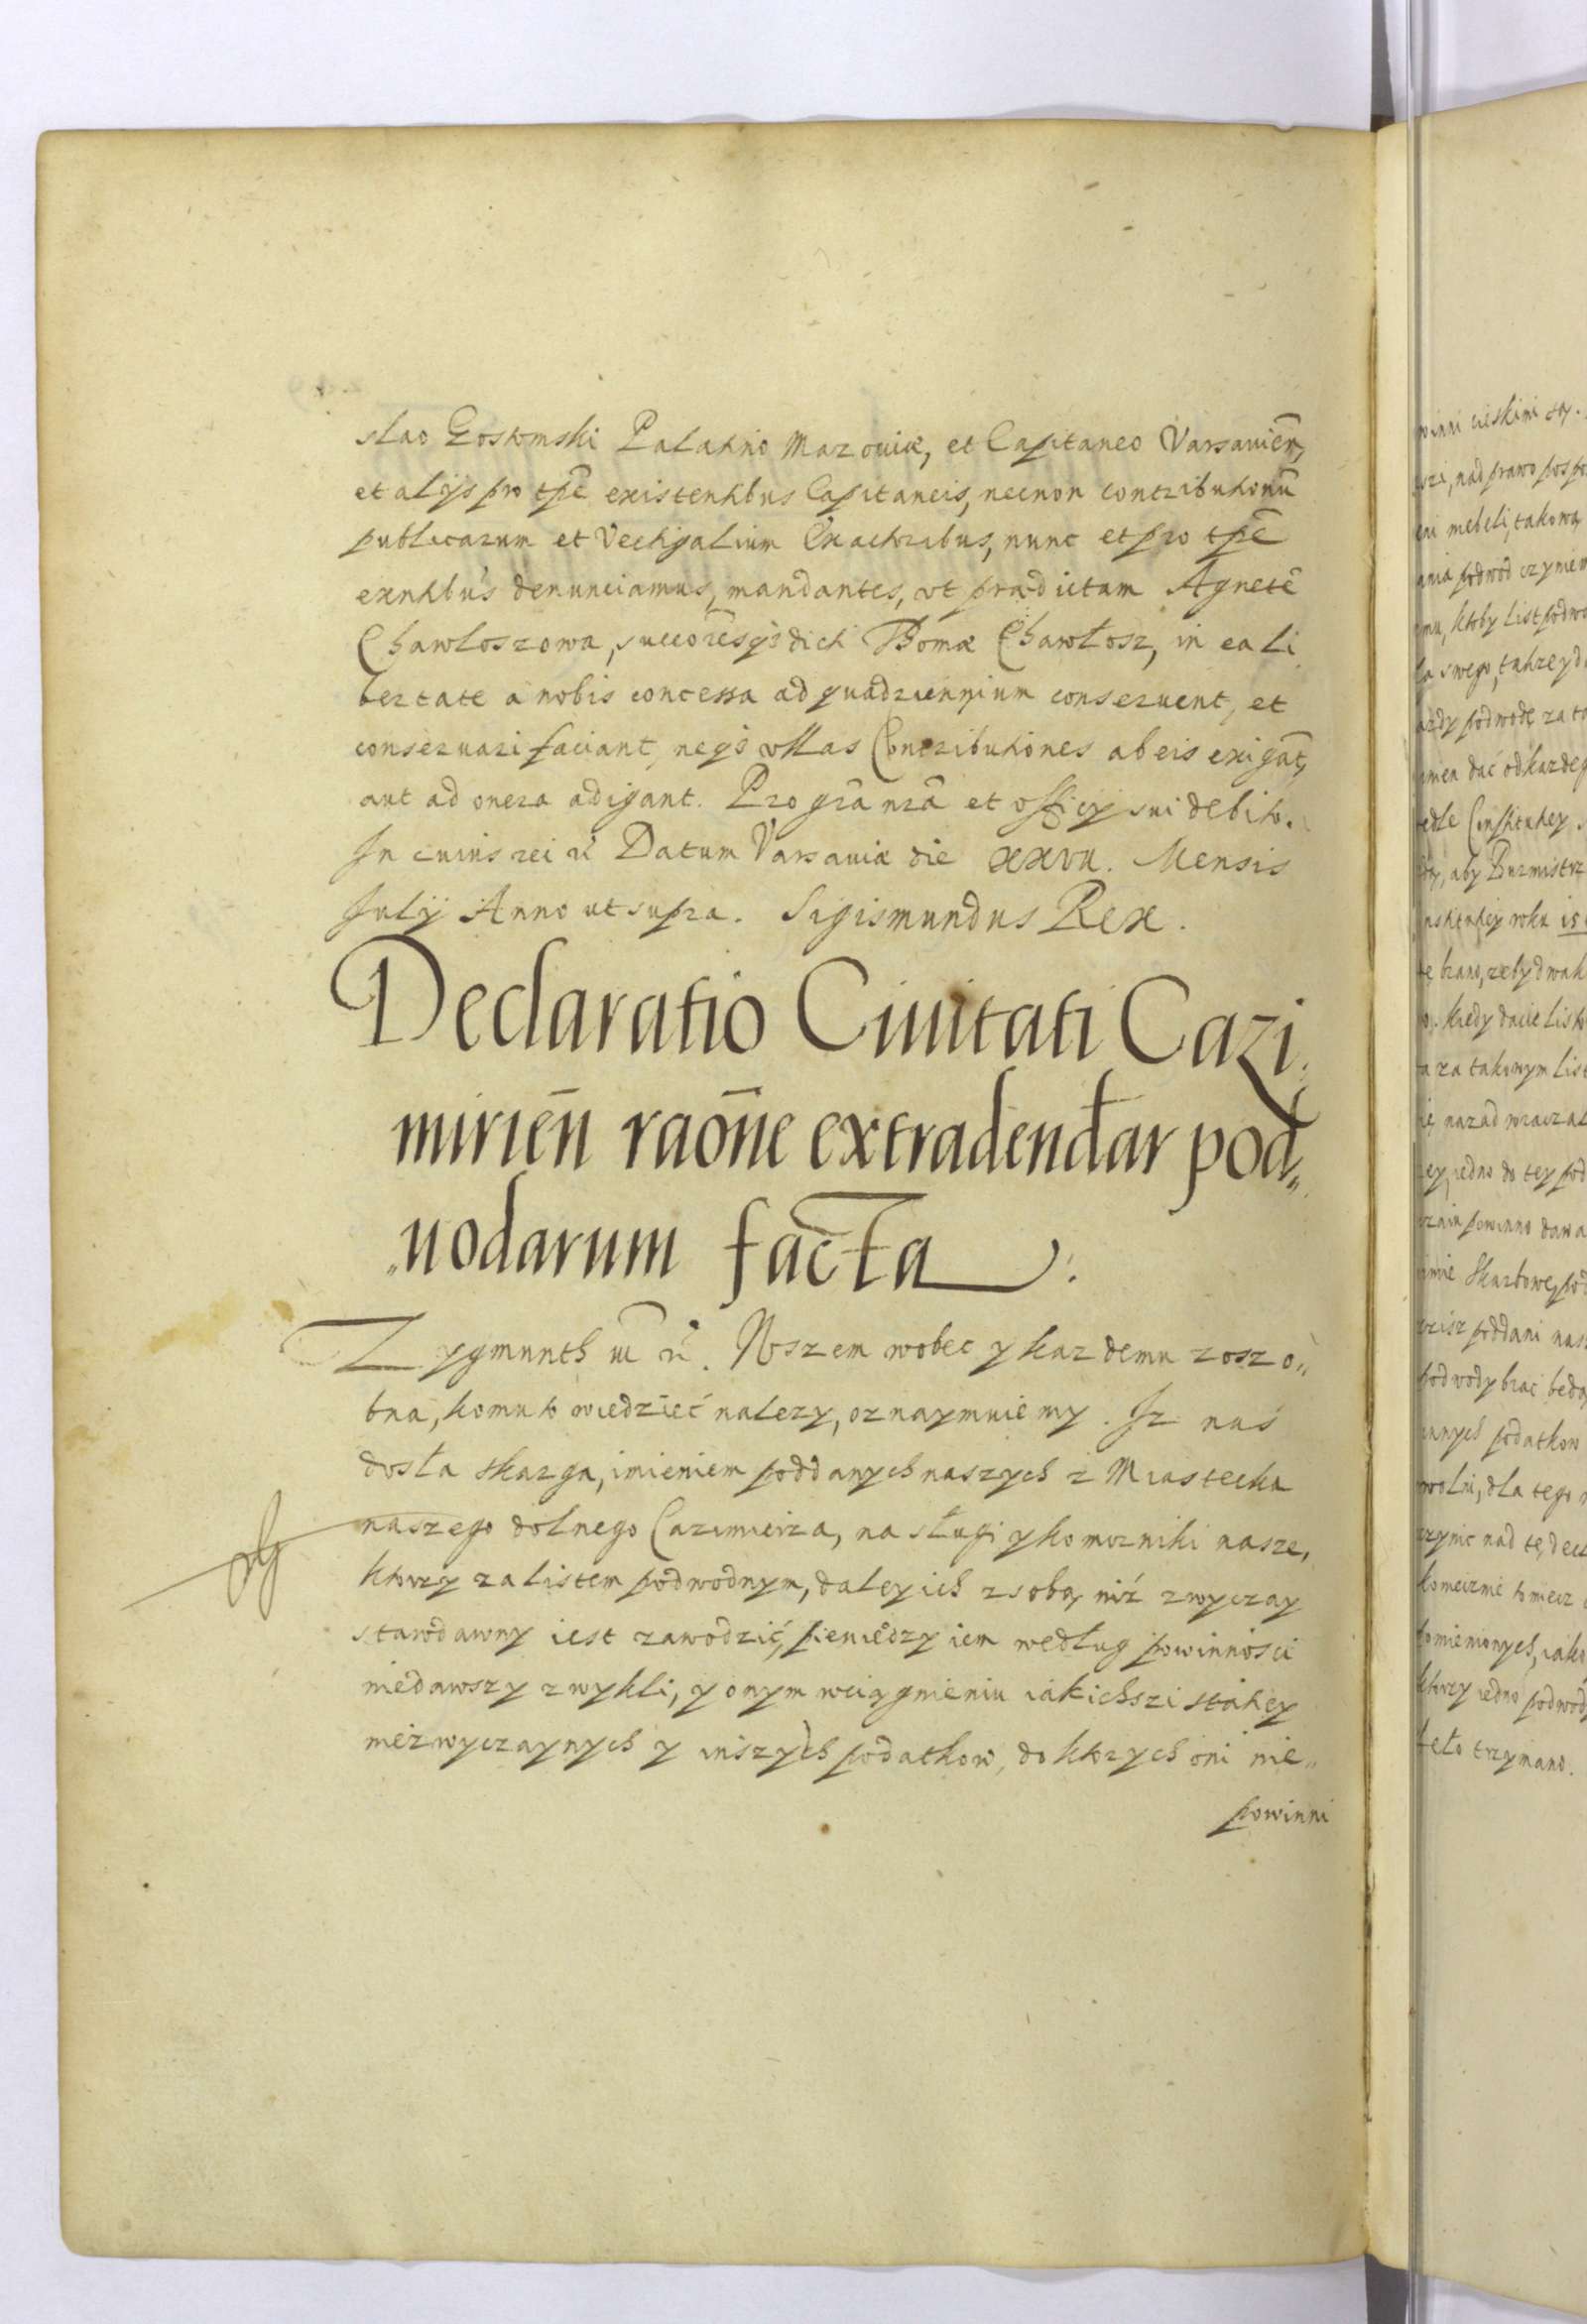 slao Gostomski Palatino Mazoviæ, et Capitaneo Varsavien̄,
et alijs pro tp̄e existentibus Capitaneis, necnon contributionū
publicarum et Vectigalium Exactoribus, nunc et pro tp̄e
exntibus denunciamus, mandantes, vt prædictam Agnetē
Chawloszowa, successōresq́ dicti Thomæ Chawłosz, in ea li
bertate a nobis concessa ad quadriennium conseruent, et
conseruari faciant, neq́ vllas Contributiones ab eis exigāt,
aut ad onera adigant. Pro grā nrā et officij sui debito.
In cuius rei ꝛ Datum Varsauiæ die XXVII. Mensis
Julij Anno ut supra. Sigismundus Rex.
Declaratio Ciuitati Cazi
mirien̄ raōne extradendar pod„
„uodarum facta
Zygmunth III ꝛ. Wszem wobec y kazdemu zoszo„
bna, komu to wiedzieć nalezy, oznaymuiemy. Iz nas
dosła skarga, imieniem poddanych naszych z Miastecka
naszego dolnego Cazimierza, na sługi y komorniki nasze,
ktorzy za listem podwodnym, daley ich z sobą niż zwyczay
starodawny iest zawodzić, pieniędzy iem według powinnosci
niedawszy zwykli, y onym wciągnieniu iakichszi stáciey
niezwyczaynych y inszych podatkow, do ktorych oni nie„
powinni
winni
nad prawo
takową
podwod czyniem
ktoby List
swego, takze y
podwodę za to
dać od kazdeg
Constitucey
aby Burmistrz
roku
kiedy
za takowym list
nazad wracza
iedno do tey pod
powinno dawa
Skarbowe, pod
poddani nas
podwody brac będą
podatkow
wolni, dla tego
nad tę decl
pomienionych, iako
ktorzy iedno podwod
trzymano.